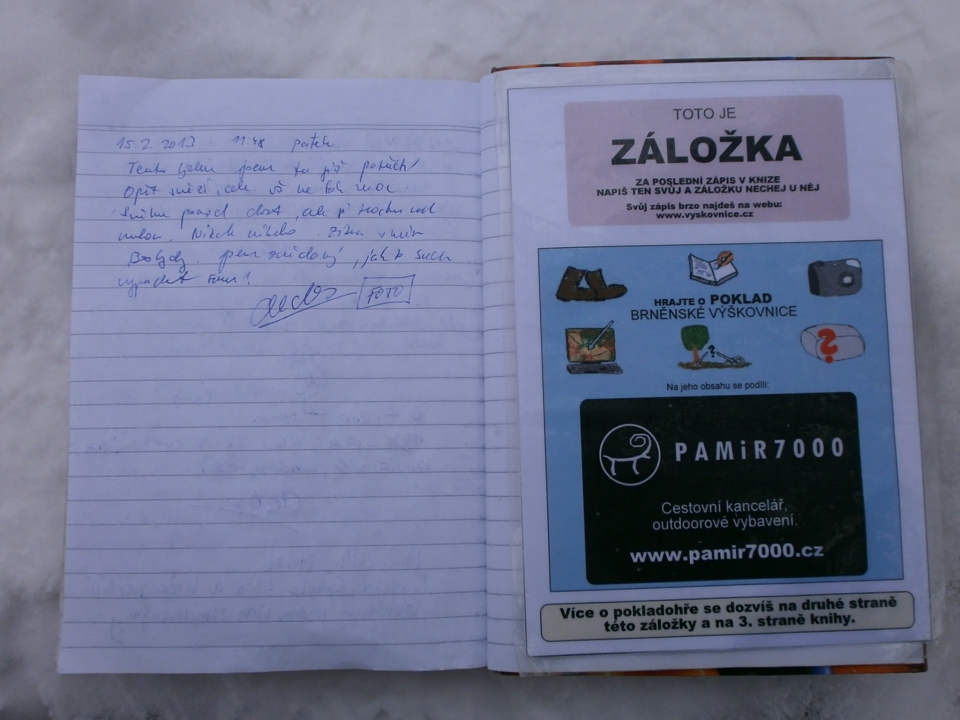 15.2.2013 11:48 pátek
Tento týden jsem tu již potřetí
Opět sněží, ale už ne tak moc.
Sněhu pořád dost, ale
Nikde nikoho.
jsem zvědavý, jak to bude
vypadat
FOTO
TOTO JE
ZÁLOŽKA
ZA POSLEDNÍ ZÁPIS V KNIZE
NAPIŠ TEN SVŮJ A ZÁLOŽKU NECHEJ U NĚJ
Svůj zápis brzo najdeš na webu:
www.vyskovnice.cz
HRAJTE O POKLAD
BRNĚNSKÉ VÝŠKOVNICE
?
?
Na jeho obsahu se podílí:
PAMiR7000
Cestovní kancelář,
outdoorové vybavení.
www.pamir7000.cz
Více o pokladohře se dozvíš na druhé straně
této záložky a na 3. straně knihy.